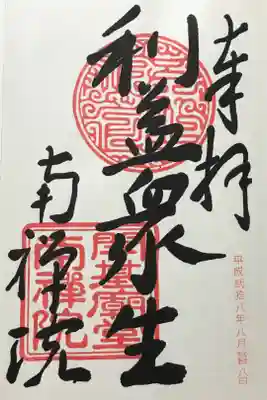 奉拝
利益衆生
南禅院
開基廟堂
南禅院
平成 拾八年八月 八日